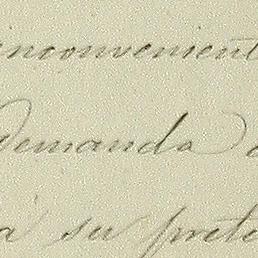 inconvenient
demanda
a su prete